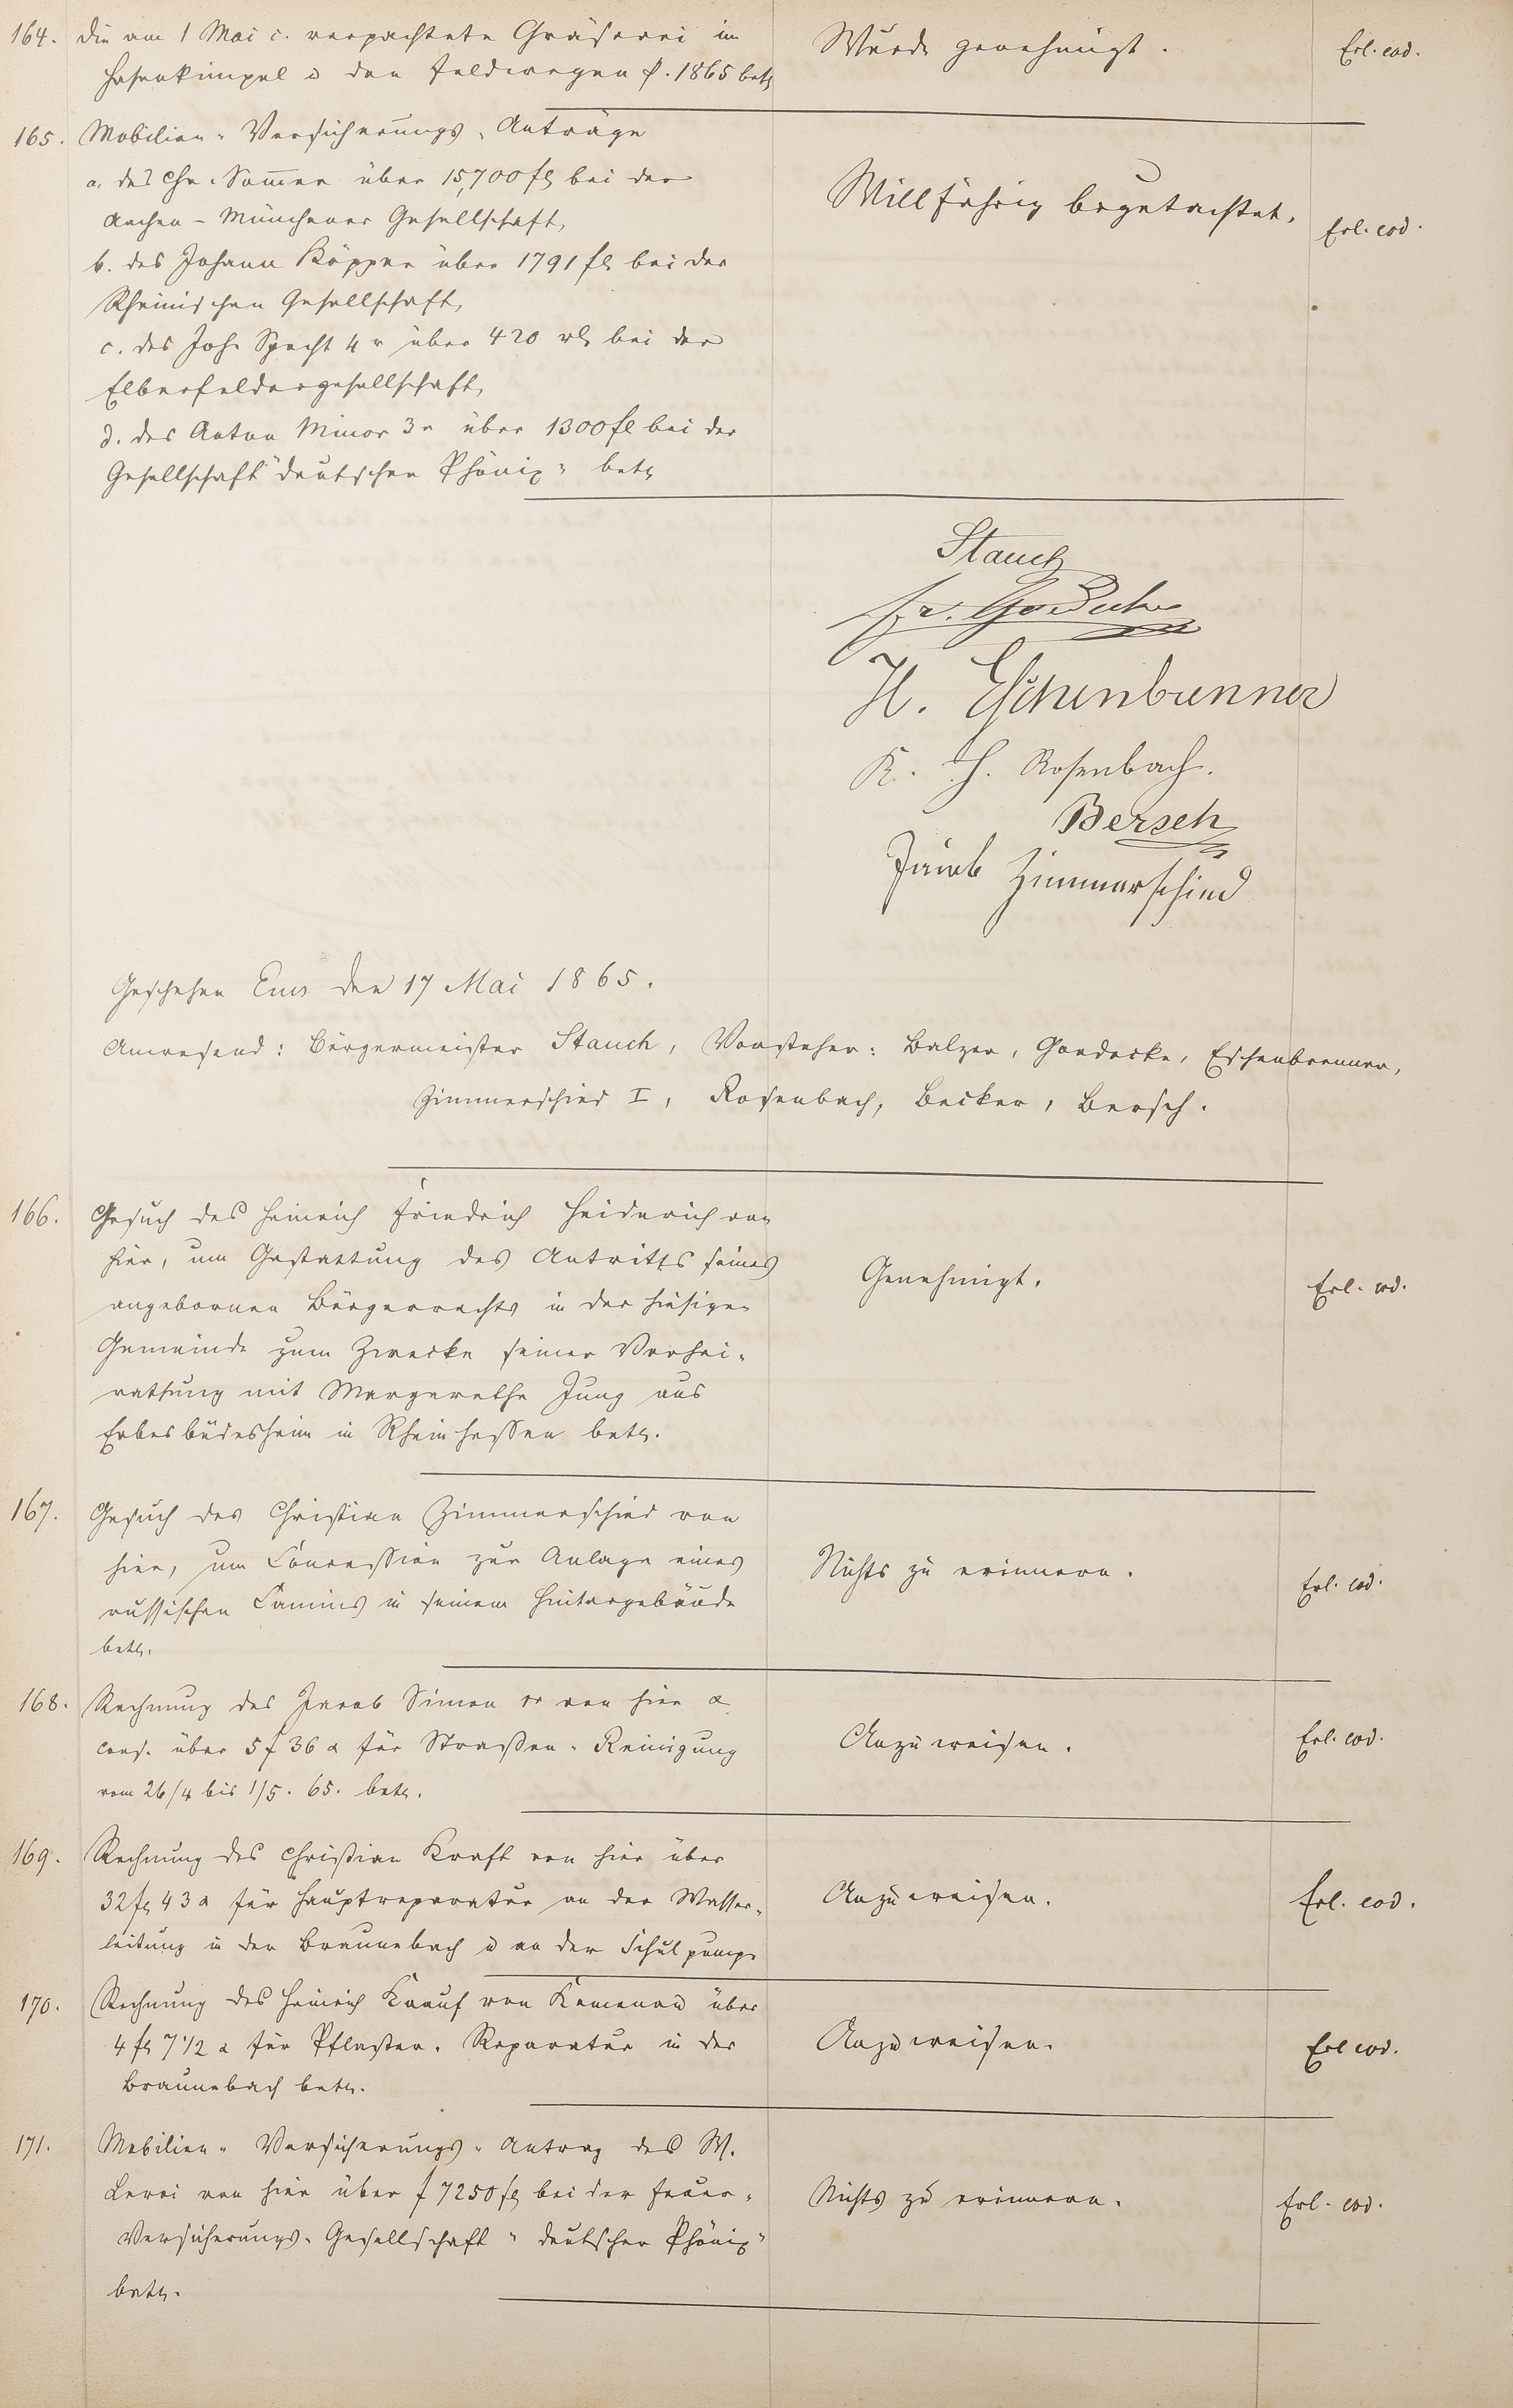 164. Die am 1 Mai c. verpachtete Gräserei im
Hasenkümpel u den Feldwegen p. 1865 betr
Wurde genehmigt.
Erl. eod.
165. Mobilien-Versicherungs-Anträge
a. des Chr. Sommer über 15,700 fl bei der
Aachen-Münchener Gesellschaft,
b. des Johann Köpper über 1791 fl bei der
Rheinischen Gesellschaft,
c. des Joh. Specht 4r über 420 rl bei der
Elberfeldergesellschaft,
d. des Anton Minor 3r über 1300 fl bei der
Gesellschaft "deutscher Phönix" betr
Willfährig begutachtet.
Erl. eod.
Stauch
Fr. Goedecke
H. Eschenbrenner
K. H. Rosenbach.
Bersch
Jacob Zimmerschied
Geschehen Ems den 17 Mai 1865.
Anwesend: Bürgermeister Stauch, Vorsteher: Balzer, Goedecke, Eschenbrenner,
Zimmerschied I, Rosenbach, Becker, Bersch.
166. Gesuch des Heinrich Friedrich Heiderich von
hier, um Gestattung des Antritts seines
angebornen Bürgerrechts in der hiesigen
Gemeinde zum Zwecke seiner Verhei-
rathung mit Margarethe Jung aus
Erbesbüdesheim in Rheinhessen betr.
Genehmigt.
Erl. eod.
167. Gesuch des Christian Zimmerschied von
hier, um Concession zur Anlage eines
russischen Camins in seinem Hintergebäude
betr.
Nichts zu erinnern.
Erl. eod.
168. Rechnung des Jacob Simon von hier &
cons. über 5 f 36 x für Straßen-Reinigung
vom 26/4 bis 1/5. 65. betr.
Anzuweisen.
Erl. eod.
169. Rechnung des Christian Kraft von hier über
32 fl 43 x für Hauptreparatur an der Wasser-
leitung in der Braunebach u an der Schulpumpe
Anzuweisen.
Erl. eod.
170. Rechnung des Heinrich Knauf von Kemenau über
4 fl 7 1/2 x für Pflaster-Reparatur in der
Braunebach betr.
Anzuweisen.
Erl eod.
171. Mobilien-Versicherungs-Antrag des W.
Leroi von hier über f 7250 fl bei der Feuer-
Versicherungs-Gesellschaft "deutscher Phönix"
betr.
Nichts zu erinnern.
Erl. eod.